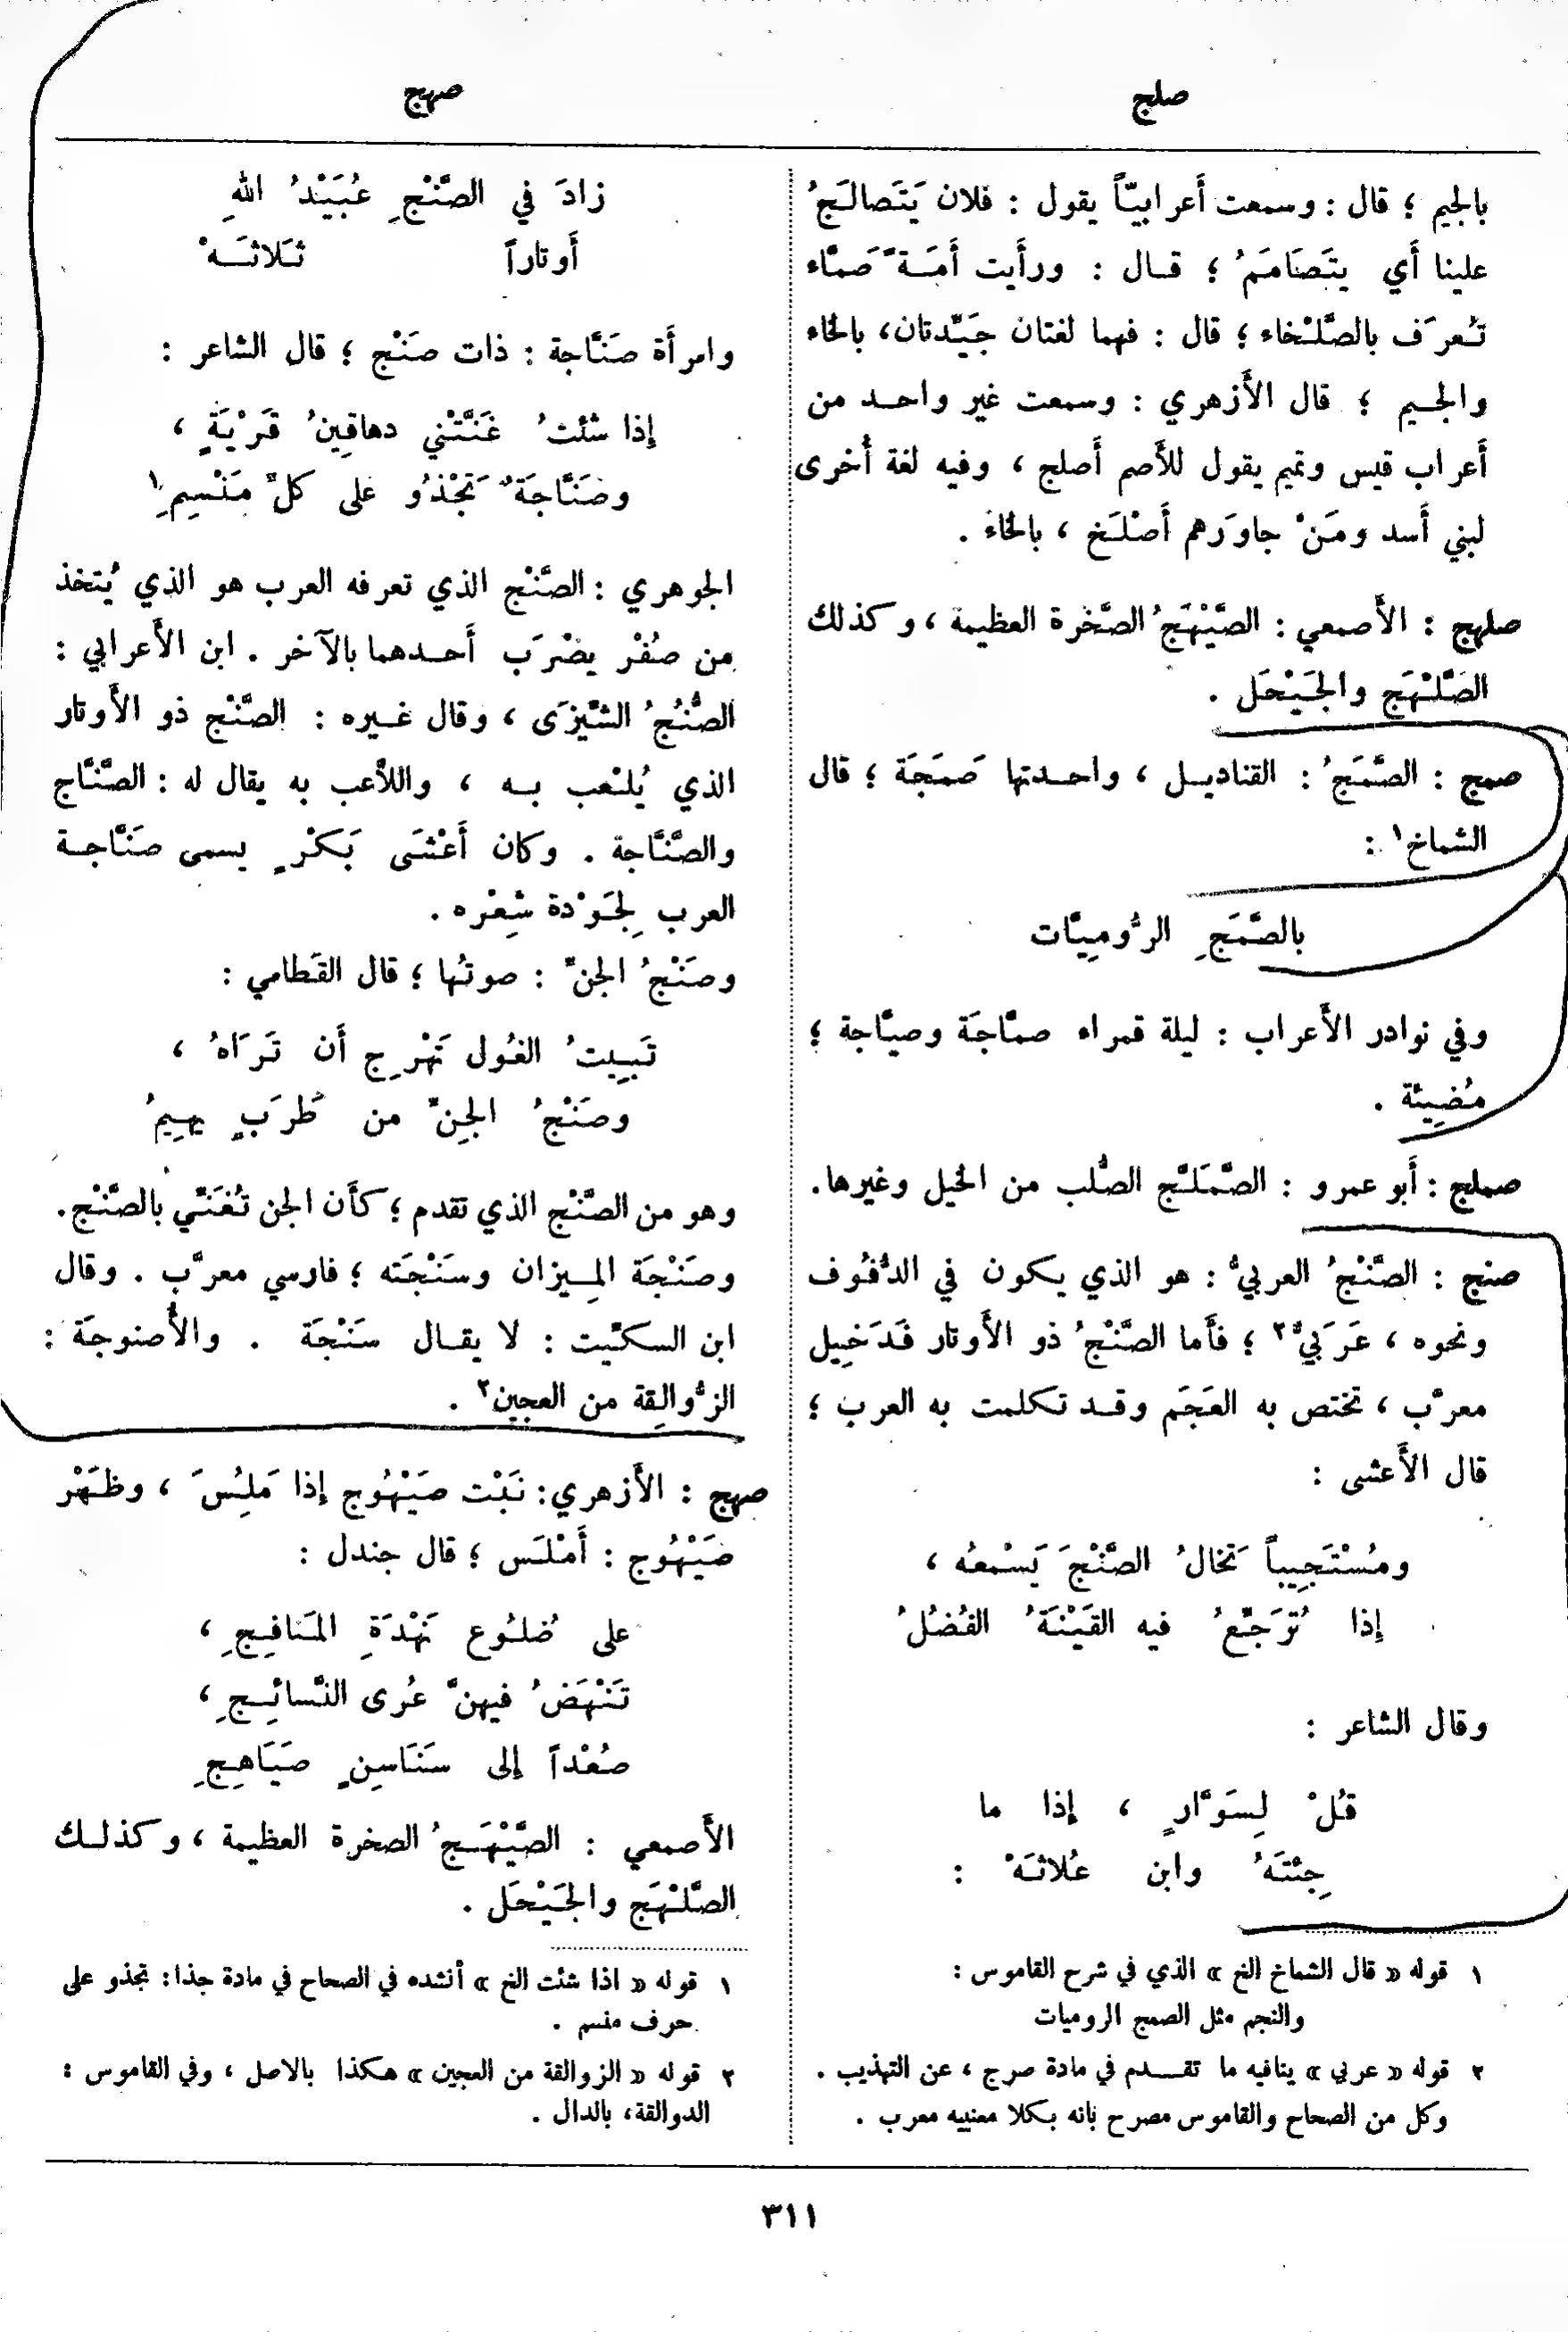 صلج
صهج
بالجيم ؛ قال : وسمعت أَعرابيّاً يقول : فلان يَتَصالَجُ
علينا أَي يتَصَامَمُ ؛ قال : ورأَيت أَمَةً صَمَّاء
تُعرَف بالصَّلْخاء ؛ قال : فهما لغتان جَيِّدتان، بالخاء
والجيم ؛ قال الأَزهري : وسمعت غير واحد من
أَعراب قيس وتميم يقول للأَصم أَصلج ، وفيه لغة أُخرى
لبني أَسد ومَنْ جاوَرهم أَصْلَخ ، بالخاء .
صلهج : الأَصمعي : الصَّيْهَجُ الصَّخرة العظيمة ، وكذلك
الصَّلْهَج والجَيْحَل .
صمج : الصَّمَجُ : القناديل ، واحدتها صَمَجَة ؛ قال
الشماخ١ :
بالصَّمَجِ الرُّومِيَّات
وفي نوادر الأَعراب : ليلة قمراء صمَّاجَة وصيَّاجة ؛
مُضِيئة .
صملج : أَبو عمرو : الصَّمَلَّج الصُّلب من الخيل وغيرها.
صنج : الصَّنْجُ العربيُّ : هو الذي يكون في الدُّفُوف
ونحوه ، عَرَبيٌّ٢ ؛ فأَما الصَّنْجُ ذو الأَوتار فَدَخِيل
معرَّب ، تختص به العَجَم وقد تكلمت به العرب ؛
قال الأَعشى :
ومُسْتَجِيباً تَخالُ الصَّنْجَ يَسْمعُه ،
إِذا تُرَجِّعُ فيه القَيْنَةُ الفُضُلُ
وقال الشاعر :
قُلْ لِسَوَّارٍ ، إِذا ما
جِئْتَهُ وابن عُلاثَهْ :
زادَ في الصَّنْجِ عُبَيْدُ اللهِ
أَوتاراً ثَلاثَهْ
وامرأَة صَنَّاجة : ذات صَنْج ؛ قال الشاعر :
إِذا شئتُ غَنَّتْني دهاقِينُ قَرْيَةٍ ،
وصَنَّاجَةٌ تَجْذُو على كلِّ مَنْسِمِ١
الجوهري : الصَّنْج الذي تعرفه العرب هو الذي يُتخذ
من صُفْر يضْرَب أَحدهما بالآخر . ابن الأَعرابي :
الصُّنُجُ الشِّيزَى ، وقال غيره : الصَّنْج ذو الأَوتار
الذي يُلْعب به ، واللاَّعب به يقال له : الصَّنَّاج
والصَّنَّاجة . وكان أَعْشَى بَكْرٍ يسمى صَنَّاجة
العرب لِجَوْدة شِعْره .
وصَنْجُ الجنِّ : صوتُها ؛ قال القَطامي :
تَبِيتُ الغُول تَهْرِج أَن تَرَاهُ ،
وصَنْجُ الجِنِّ من طَرَبٍ يهِيمُ
وهو من الصَّنْج الذي تقدم ؛ كأَن الجن تُغَنِّي بالصَّنْج.
وصَنْجَة المِيزان وسَنْجَته ؛ فارسي معرَّب . وقال
ابن السكّيت : لا يقال سَنْجَة . والأُصنوجَة :
الزُّوالِقة من العجين٢ .
صهج : الأَزهري: نَبْت صَيْهُوج إِذا مَلِسَ ، وظَهْر
صَيْهُوج : أَمْلَس ؛ قال جندل :
على ضُلُوع نَهْدَةِ المَنافِجِ ،
تَنْهَضُ فيهنَّ عُرى النَّسائِجِ ،
صُعْداً إِلى سَنَاسِنٍ صَيَاهِجِ
الأَصمعي : الصَّيْهَجُ الصخرة العظيمة ، وكذلك
الصَّلْهَج والجَيْحَل .
١ قوله « قال الشماخ الخ » الذي في شرح القاموس :
والنجم مثل الصمج الروميات
٢ قوله « عربي » ينافيه ما تقدم في مادة صرج ، عن التهذيب .
وكل من الصحاح والقاموس مصرح بانه بكلا معنييه معرب .
١ قوله « اذا شئت الخ » أنشده في الصحاح في مادة جذا: تجذو على
حرف منسم .
٢ قوله « الزوالقة من العجين » هكذا بالاصل ، وفي القاموس :
الدوالقة، بالدال .
٣١١